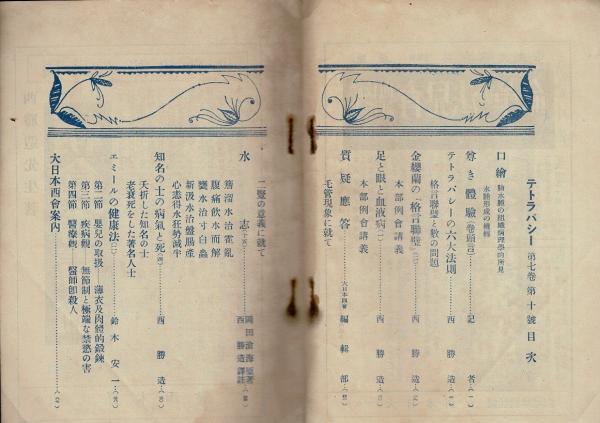 テトラパシー 第七卷 第十號 目次
口繪
尊き體驗(卷頭言)………記者…(一)
テトラパシーの六大法則………西勝造
格言聯璧と數の問題
金纓蘭の格言聯璧………西勝造
本部例會講義
足と眼と血液病………西勝造
本部例會講義
質疑應答………大日本西會 編輯部
毛管現象に就て
二覽の意義に就て
水志
西勝造譯註
簷溜水治霍亂
腹痛飲水而解
甕水治寸白蟲
新汲水治盤腸產
心恚得水狂勢減半
知名の士の病氣と死………西勝造
夭折した知名の士
老衰死をした著名人士
エミールの健康法………鈴木安一
第二節 嬰兒の取扱 薄衣及肉體的鍛鍊
第三節 疾病觀 無節制と極端な禁慾の害
第四節 醫療觀 醫師卽殺人
大日本西會案內